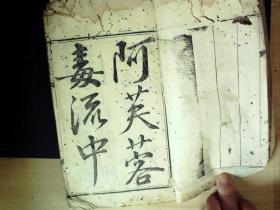 阿芙蓉
毒流中